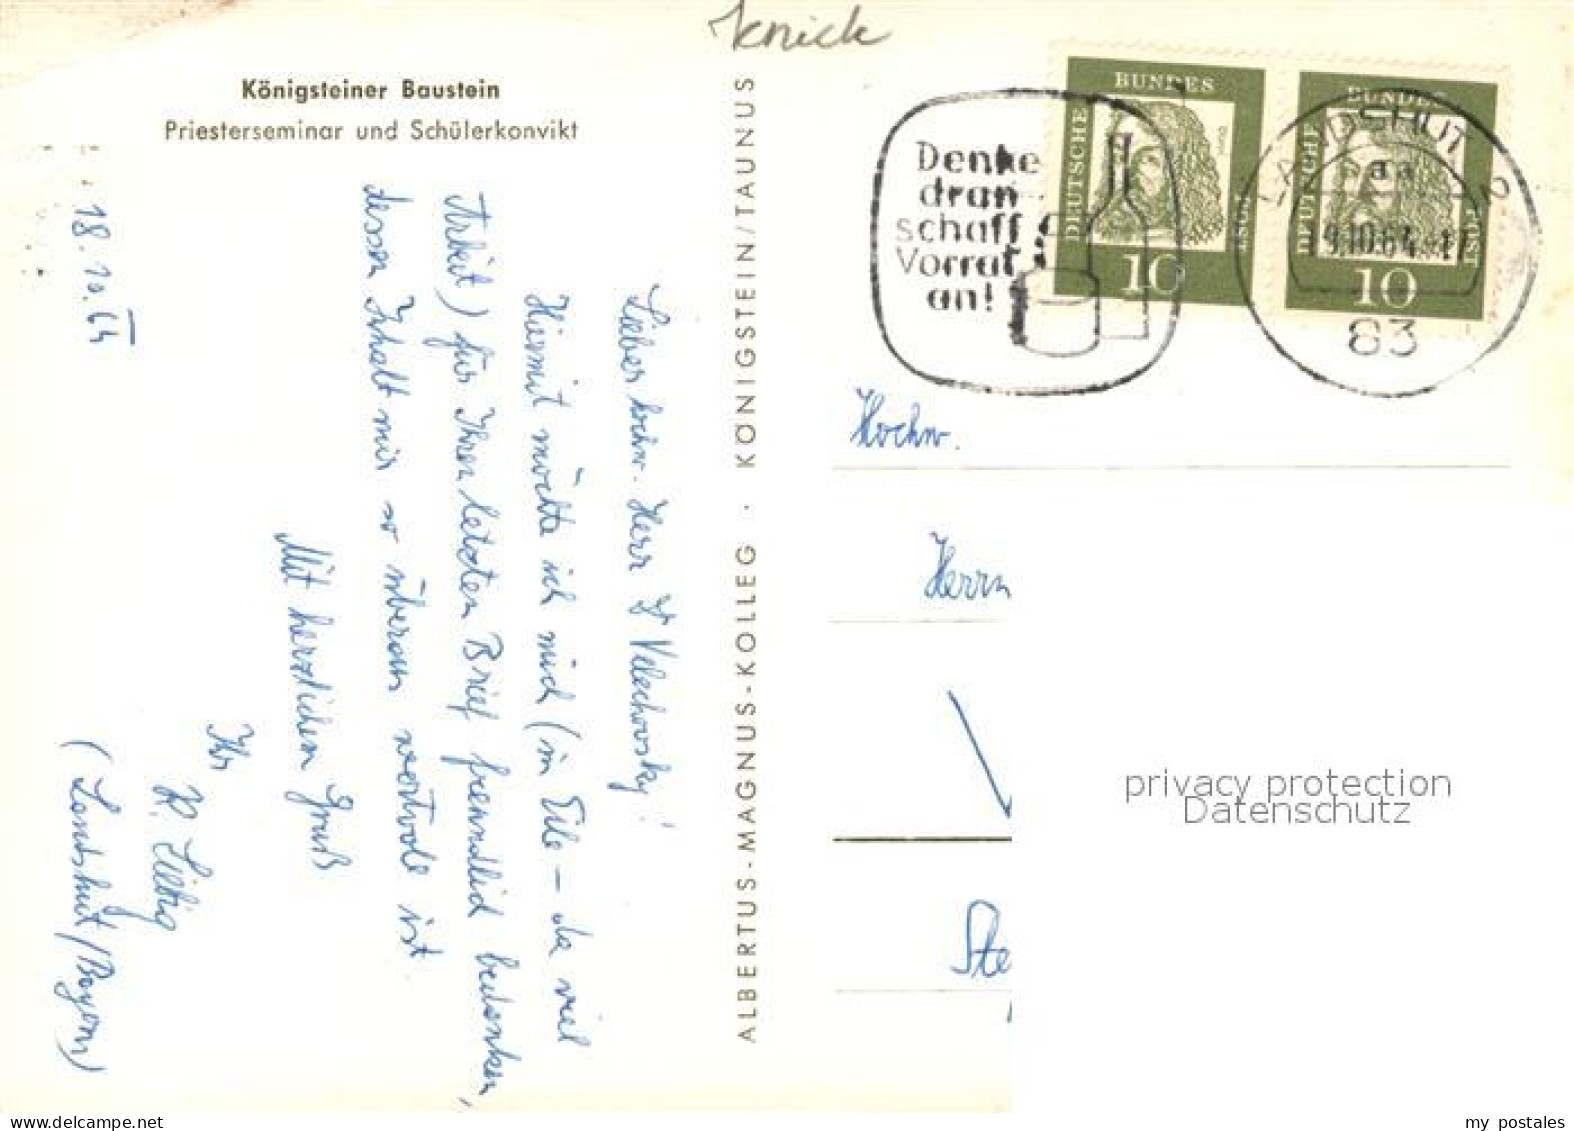 Knick
Königsteiner Baustein
Priesterseminar und Schülerkonvikt
18. 10. 64
Lieber hochw. Herr Dr Velechovsky!
Hiermit möchte ich mich (in Eile – da viel
Arbeit) für Ihren letzten Brief freundlich bedanken,
dessen Inhalt mir so überaus wertvoll ist.
Mit herzlichem Gruß
Ihr
P. Liebig
(Landshut/Bayern)
ALBERTUS-MAGNUS-KOLLEG · KÖNIGSTEIN/TAUNUS
Denke
dran
schaff
Vorrat
an!
DEUTSCHE
BUNDES
POST
10
DEUTSCHE
BUNDES
POST
10
LANDSHUT 2
aa
19.10.64-17
83
Hochw.
Herrn
Ste
privacy protection
Datenschutz
my postales